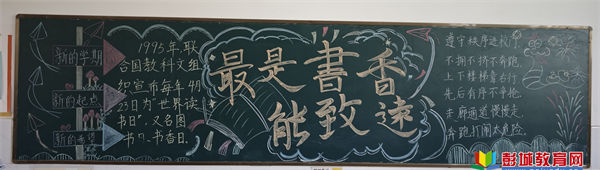 新的学期
新的起点
新的希望
1995年,联
合国教科文组
织宣布每年4月
23日为"世界读
书日",又名图
书日、书香日.
最是書香
能致遠
遵守秩序进校门,
不拥不挤不奔跑.
上下楼梯靠右行
先后有序不争抢.
走廊通道慢慢走.
奔跑打闹太危险.
彭城教育网